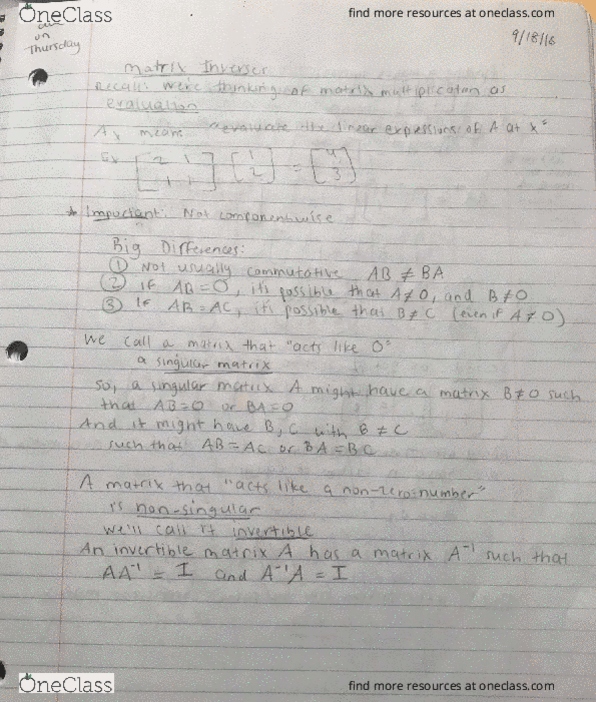 OneClass
find more resources at oneclass.com
on
Thursday
9/18/16
Matrix Inverses
Recall: We're thinking of matrix multiplication as
evaluation
Ax means "evaluate the linear expressions of A at x"
Ex [2 1
1 1] [1
2] = [4
3]
* Important: Not componentwise
Big Differences:
① Not usually commutative AB ≠ BA
② If AB=O, it's possible that A≠O, and B≠O
③ If AB=AC, it's possible that B≠C (even if A≠O)
We call a matrix that "acts like O"
a singular matrix
So, a singular matrix A might have a matrix B≠O such
that AB=O or BA=O
And it might have B, C with B≠C
such that AB=AC or BA=BC
A matrix that "acts like a non-zero number"
is non-singular
we'll call it invertible
An invertible matrix A has a matrix A⁻¹ such that
AA⁻¹ = I and A⁻¹A = I
OneClass
find more resources at oneclass.com